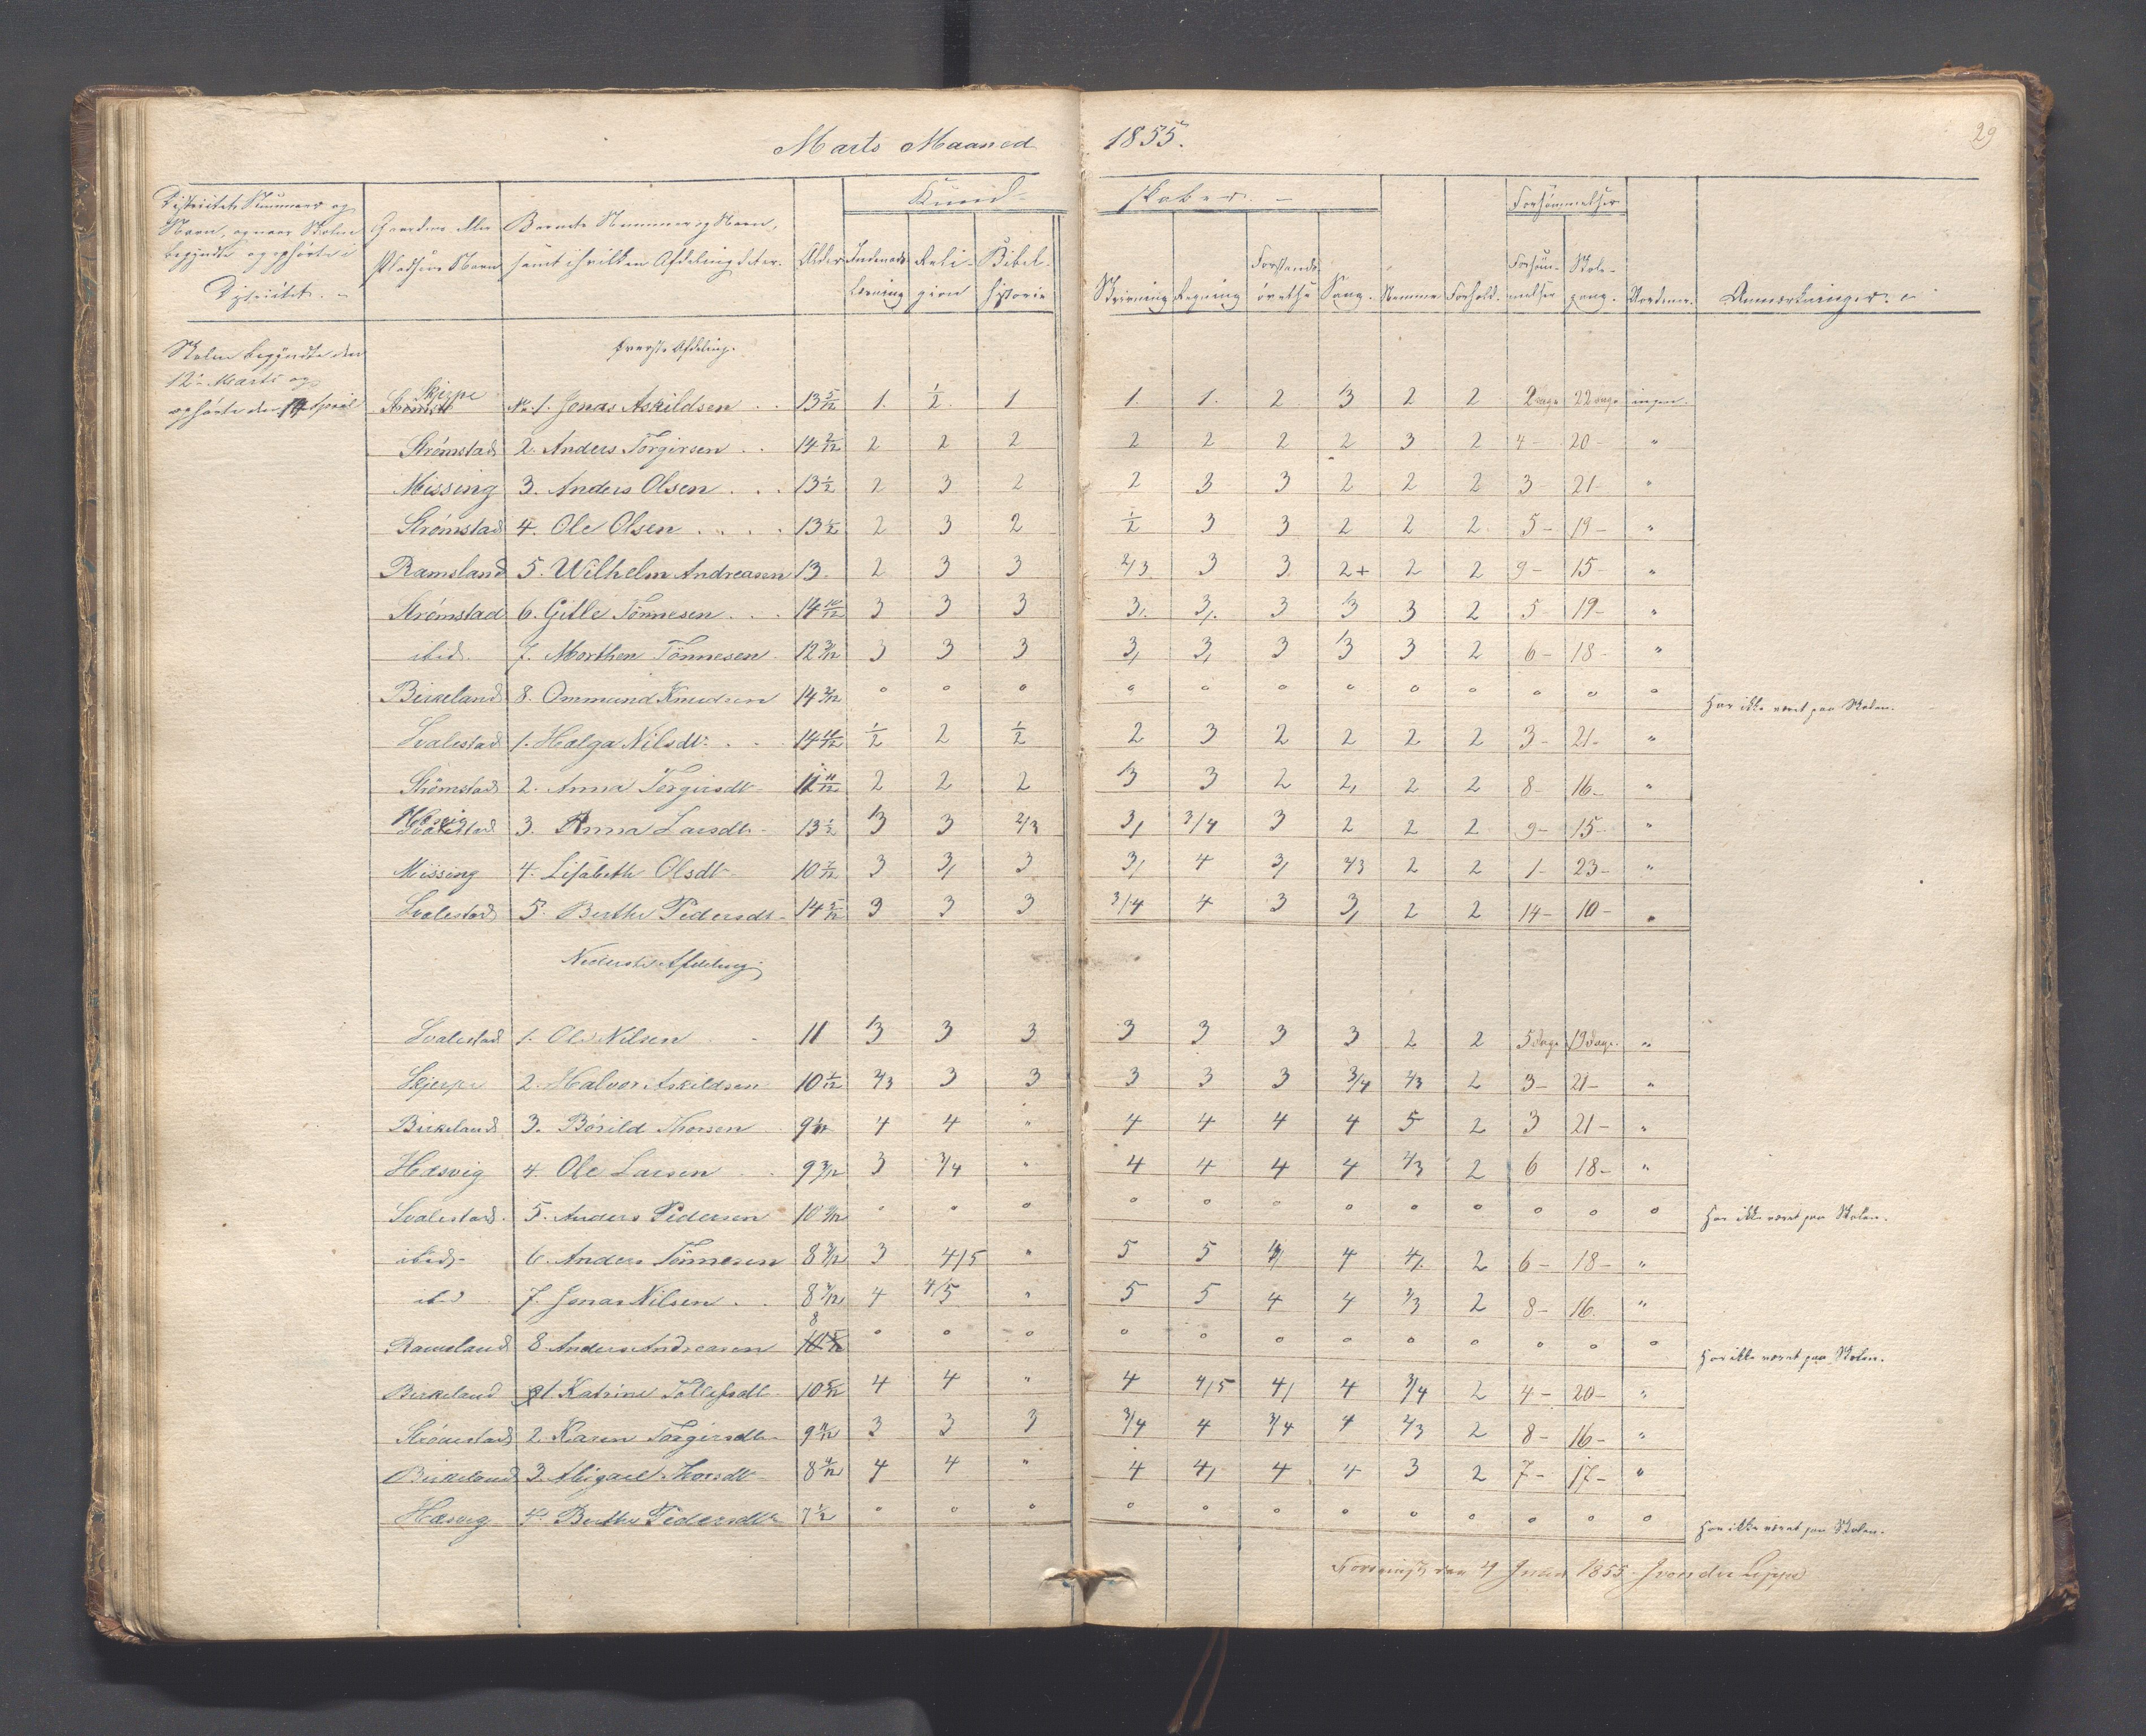 Marts Maaned 1855.
29
Distriktets Nummer og
Navn, og naar Skolen
begyndte og ophørte i
Distriktet.
Gaardens eller
Pladsens Navn
Barnets Nummer og Navn,
samt i hvilken Afdeling det er.
Alder
Kund-
skaber.
Indenads-
læsning
Reli-
gion
Bibel-
historie
Skrivning
Regning
Forstands-
øvelse
Sang.
Nemme
Forhold.
Forsømmelser
Forsøm-
melser
Skole-
gang.
Anmærkninger.
Skolen begyndte den
12te Marts og
ophørte den 14 April
Øverste Afdeling.
Skjerpe No 1. Jonas Askildsen 13 5/12 1. 1/2 1 1. 1. 2 3 2 2 2 dage 22 dage ingen.
Strømstad 2. Anders Torgirsen 14 2/12 2 2 2 2 2 2 2 3 2 4 20- "
Missing 3. Anders Olsen 13 1/2 2 3 2 2 3 3 2 2 2 3- 21- "
Strømstad 4. Ole Olsen 13 1/2 2 3 2 1/2 3 3 2 2 2 5- 19- "
Ramsland 5. Wilhelm Andreasen 13. 2 3 3 2/3 3 3. 2+ 2 2 9- 15- "
Strømstad 6. Gitle Tönnesen 14 10/12 3 3 3 3. 3. 3 3 3 2 5- 19- "
ibid. 7. Morthen Tönnesen 12 3/12 3 3 3 3, 3, 3 3 3 2 6- 18- "
Birkeland 8. Ommund Knudsen 14 3/12 o o o o o o o o o o o o Har ikke været paa Skolen.
Svalestad 1. Helga Nilsdt. 14 11/12 1/2 2 1/2 2 3 2 2 2 2 3- 21- "
Strømstad 2. Anna Torgirsdt 11/12 2 2 2 3 3 2 2, 2 2 8- 16- "
Hæsvig 3. Anna Larsdt. 13 1/2 3 3 2/3 3, 3/4 3 2 2 2 9- 15- "
Missing 4. Lisabeth Olsdt 10 1/12 3 3, 3 3, 4 3, 2/3 2 2 1- 23- "
Svalestad 5. Berthe Pedersdt 14 5/12 3 3 3 3/4 4 3 3, 2 2 14- 10- "
Nederste Afdeling.
Svalestad 1. Ole Nilsen 11 3 3 3 3 3 3 3 2 2 5 dage 19 dage. "
Skjerpe 2. Halvor Askildsen 10 1/12 2/3 3 3 3 3 3 3/4 2/3 2 3- 21- "
Birkeland 3. Börild Thorsen 9 4 4 " 4 4 4 4 5 2 3 21- "
Hæsvig 4. Ole Larsen 9 3/12 3 3/4 " 4 4 4 4 2/3 2 6 18- "
Svalestad. 5. Anders Pedersen 10 3/12 o o o o o o o o o o o o Har ikke været paa Skolen.
ibid. 6. Anders Tönnesen 8 3/12 3 4/5 " 5 5 4 4 4. 2 6- 18- "
ibid 7. Jonas Nilsen 8 3/12 4 4/5 " 5 5 4 4 2/3 2 8- 16. "
Ramsland 8. Anders Andreasen 8 o o o o o o o o o o o o Har ikke været paa Skolen.
Birkeland 1. Katrine Tollefsdt 10 5/12 4 4 " 4 4/5 4, 4 3/4 2 4- 20- "
Strömstad 2. Karen Torgirsdt 9 11/12 3 3 3 3/4 4 3/4 4 2/3 2 8- 16- "
Birkeland 3. Abigael Thorsdt 8 4 4 " 4 4, 4 4 3 2 7- 17- "
Hæsvig 4. Berthe Pedersdt. 7 1/2 o o o o o o o o o o o o Har ikke været paa Skolen.
Forevist den 4 Juni 1855